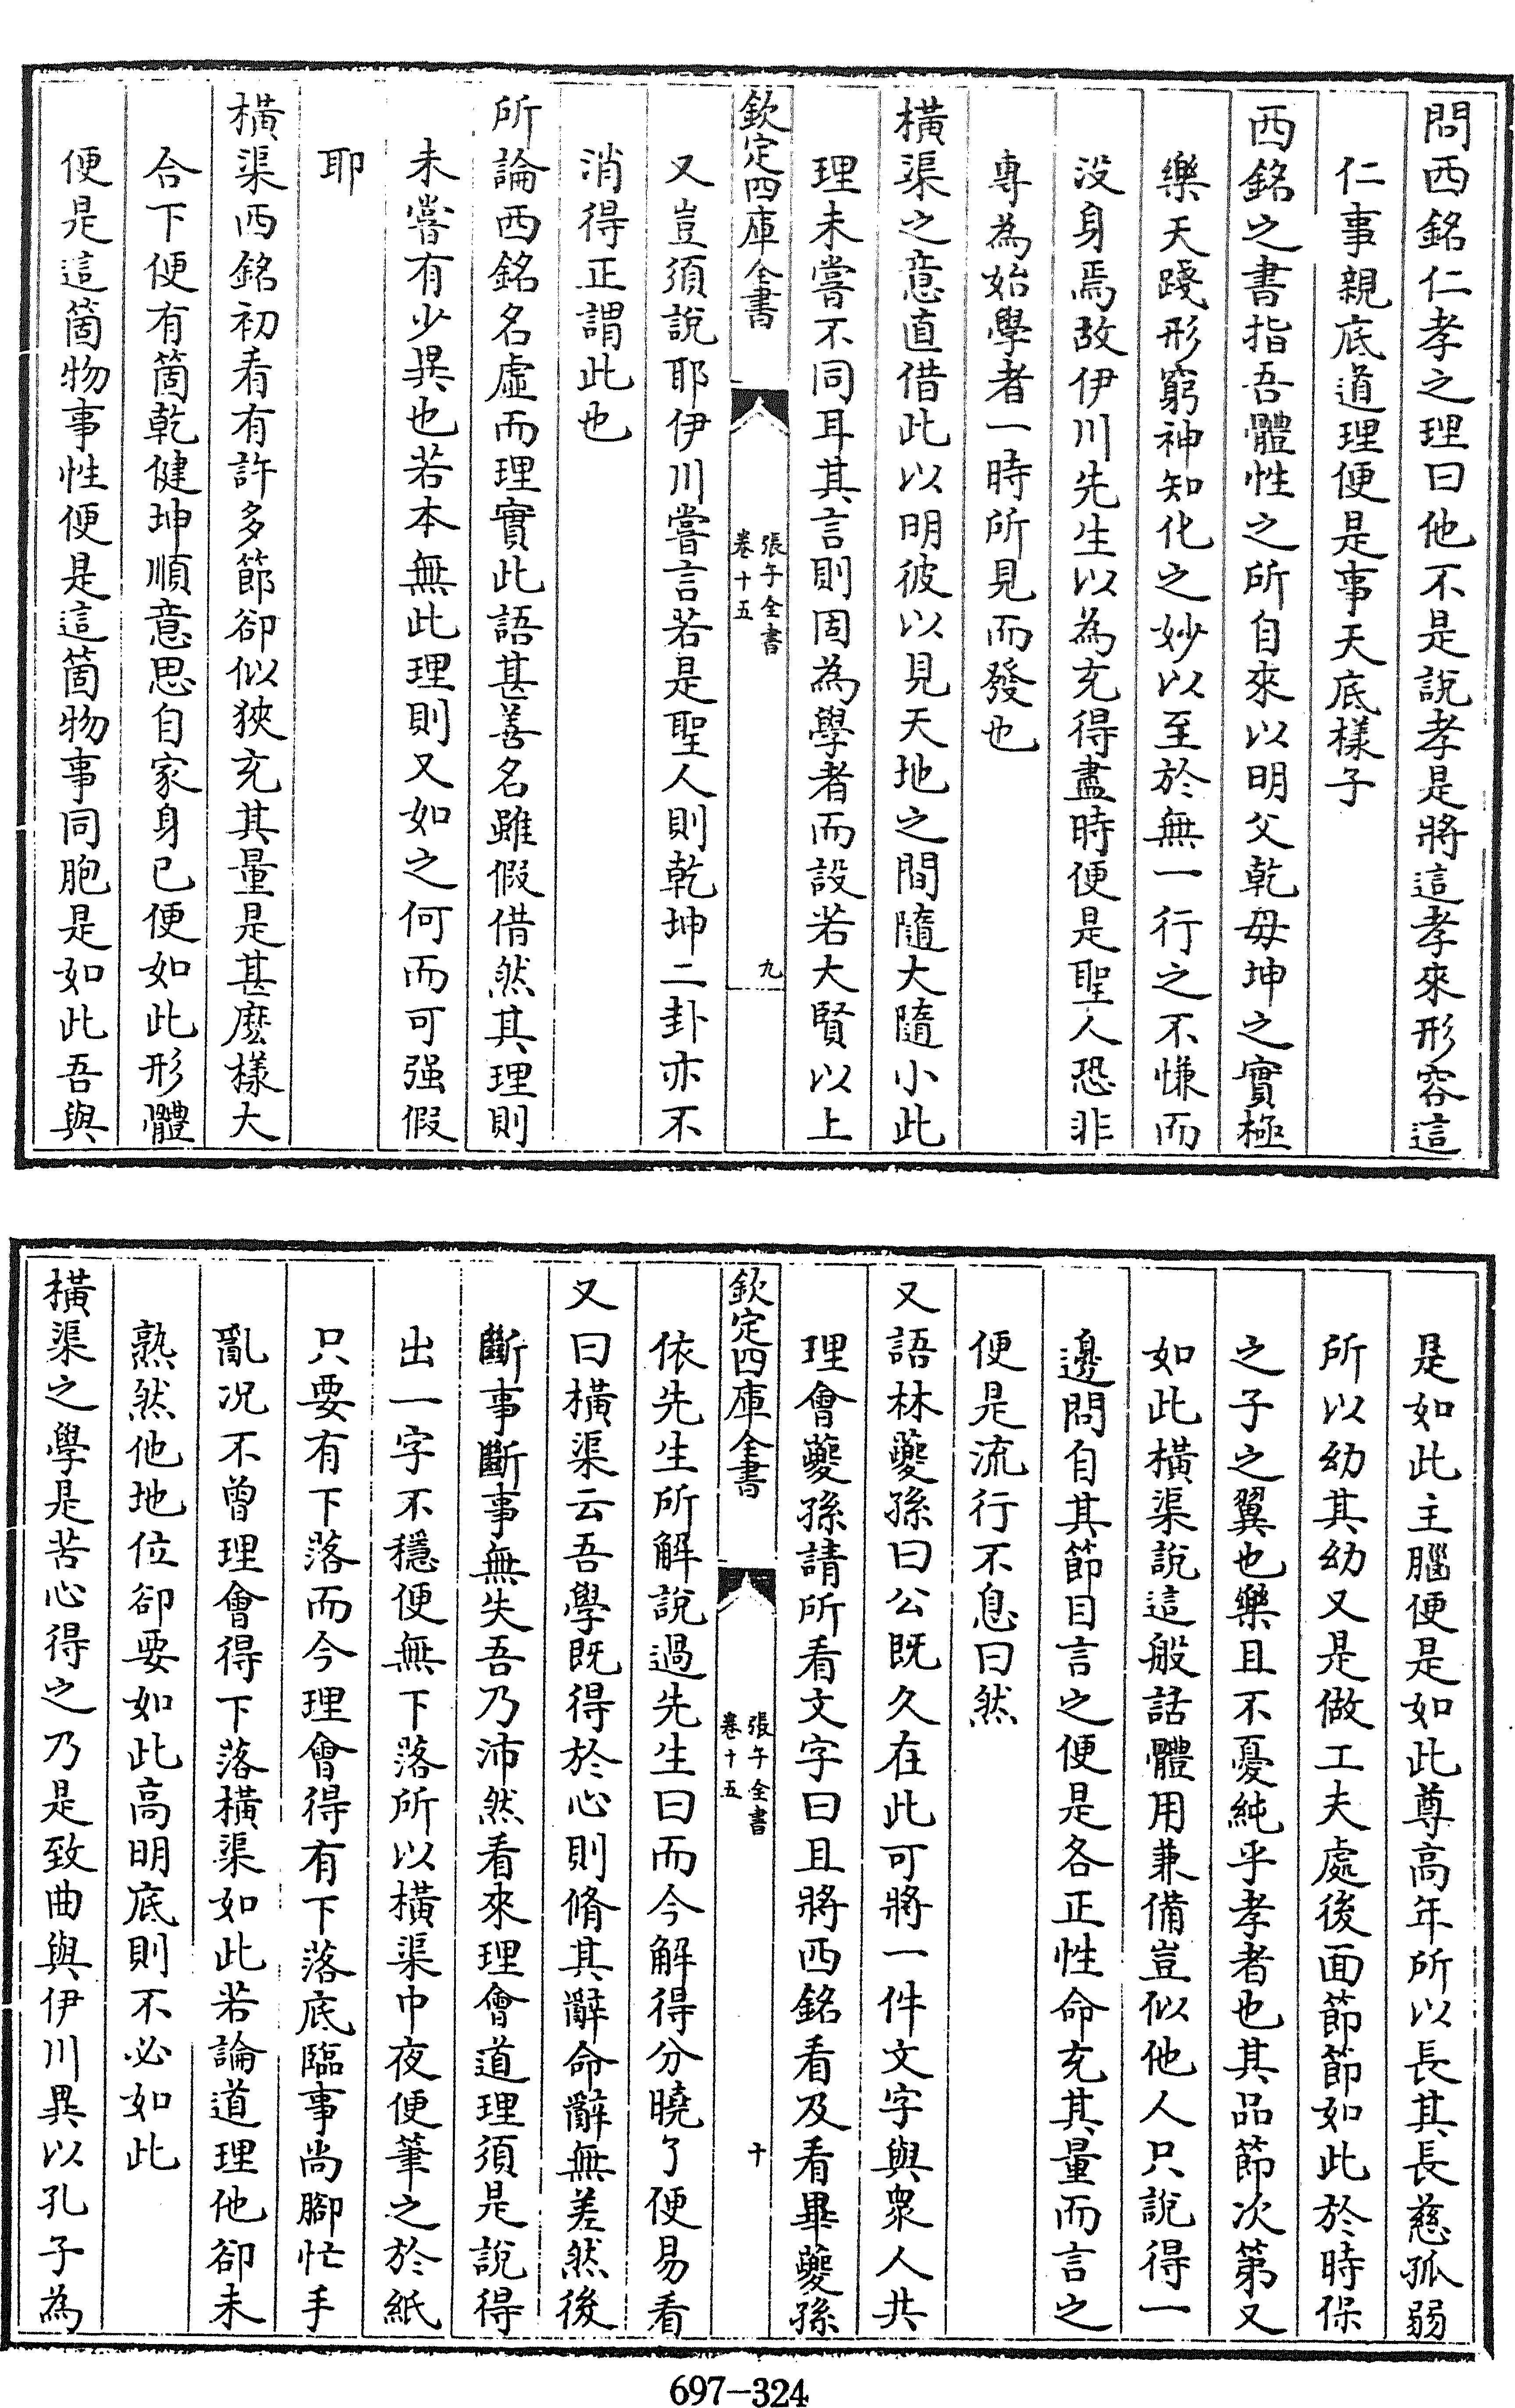 問西銘仁孝之理曰他不是說孝是將這孝來形容這
仁事親底道理便是事天底樣子
西銘之書指吾體性之所自來以明父乾母坤之實極
樂天踐形窮神知化之妙以至於無一行之不慊而
沒身焉故伊川先生以為充得盡時便是聖人恐非
專為始學者一時所見而發也
橫渠之意直借此以明彼以見天地之間隨大隨小此
理未嘗不同耳其言則固為學者而設若大賢以上
欽定四庫全書
張子全書
卷十五
九
又豈須說耶伊川嘗言若是聖人則乾坤二卦亦不
消得正謂此也
所論西銘名虛而理實此語甚善名雖假借然其理則
未嘗有少異也若本無此理則又如之何而可强假
耶
橫渠西銘初看有許多節卻似狹充其量是甚麽樣大
合下便有箇乾健坤順意思自家身已便如此形體
便是這箇物事性便是這箇物事同胞是如此吾與
是如此主腦便是如此尊高年所以長其長慈孤弱
所以幼其幼又是做工夫處後面節節如此於時保
之子之翼也樂且不憂純乎孝者也其品節次第又
如此橫渠說這般話體用兼備豈似他人只說得一
邊問自其節目言之便是各正性命充其量而言之
便是流行不息曰然
又語林夔孫曰公既久在此可將一件文字與衆人共
理會夔孫請所看文字曰且將西銘看及看畢夔孫
欽定四庫全書
張子全書
卷十五
十
依先生所解說過先生曰而今解得分曉了便易看
又曰橫渠云吾學既得於心則脩其辭命辭無差然後
斷事斷事無失吾乃沛然看來理會道理須是說得
出一字不穩便無下落所以橫渠中夜便筆之於紙
只要有下落而今理會得有下落底臨事尚腳忙手
亂况不曾理會得下落橫渠如此若論道理他卻未
熟然他地位卻要如此高明底則不必如此
橫渠之學是苦心得之乃是致曲與伊川異以孔子為
697-324